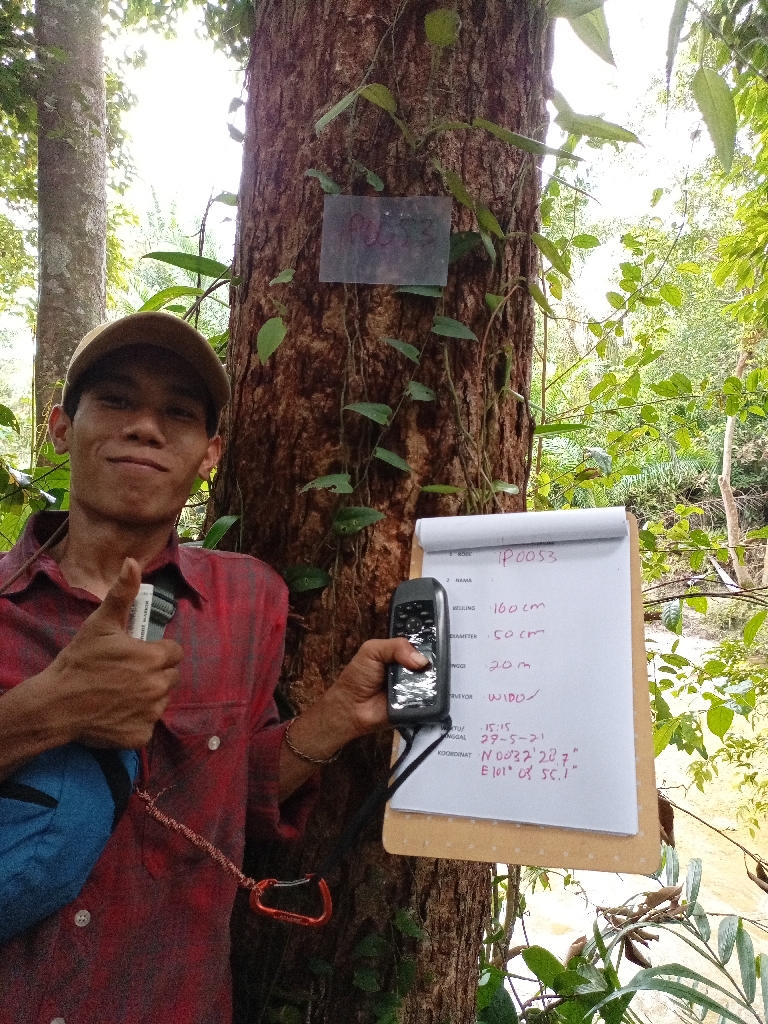 IP0053
1 KODE IP0053
2 NAMA
KELILING 160 cm
DIAMETER 50 cm
NGGI 20 m
RVEYOR WIDO
WAKTU/ 15:15
ANGGAL 29-5-21
KOORDINAT N 00 32' 28.7"
E 101° 03' 55.1"